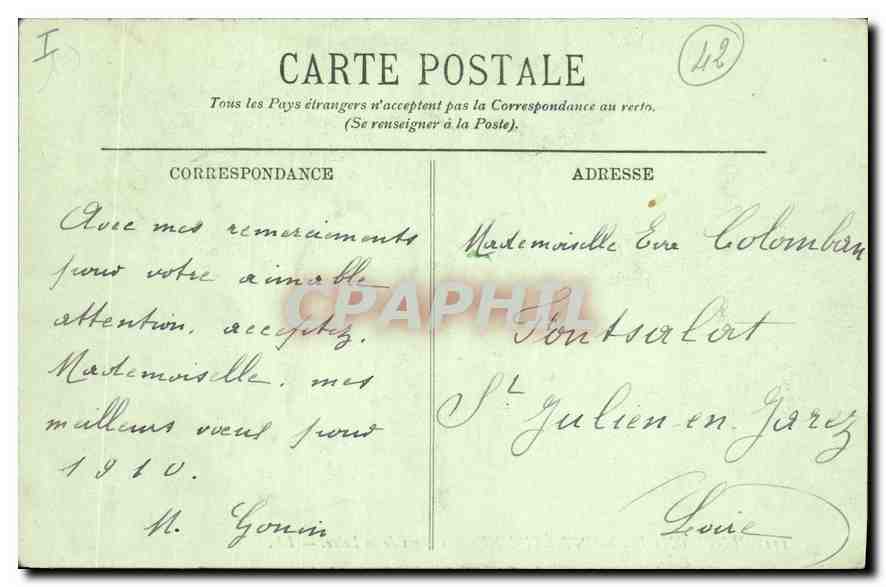 I
42
CARTE POSTALE
Tous les Pays étrangers n'acceptent pas la Correspondance au recto.
(Se renseigner à la Poste).
CORRESPONDANCE
Avec mes remerciements
pour votre aimable
attention, acceptez,
Mademoiselle, mes
meilleurs vœux pour
1910.
M. Gonin
ADRESSE
Mademoiselle Eva Colomban
Fontsalat
St Julien-en-Jarez
Loire
CPAPHIL